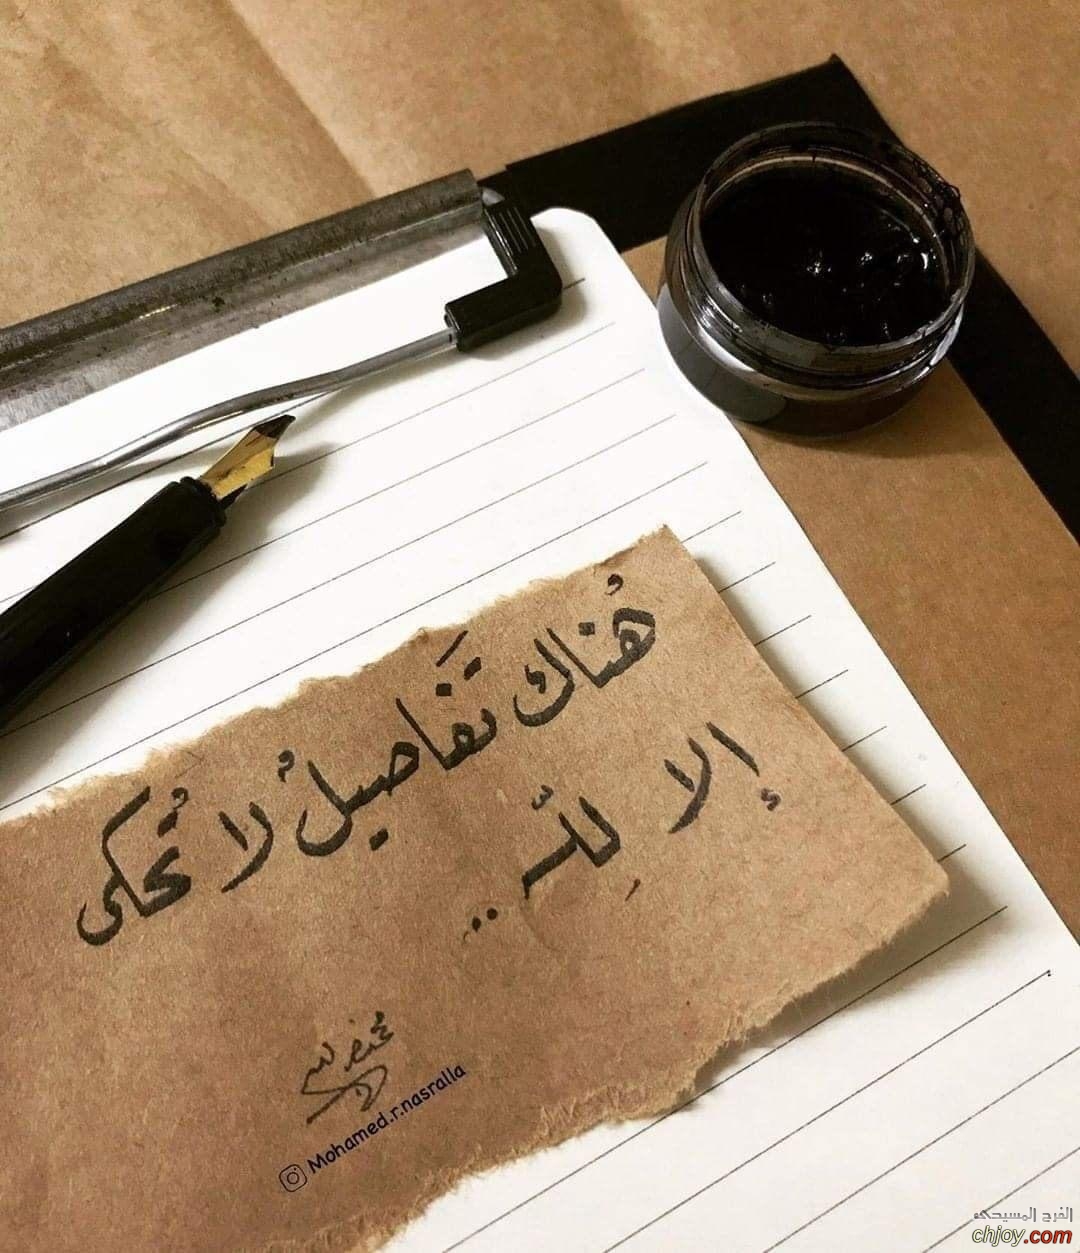 هُناك تَفاصيلْ لا تُحكى
إلا لِلّه ..
محمد نصر الله
Mohamed.r.nasralla
الفرح المسيحى
chjoy.com